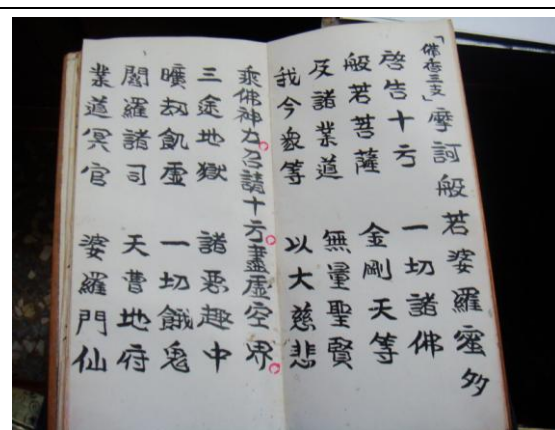 三支」摩訶般若婆羅蜜多
啓告十方 一切諸佛
般若菩薩 金剛天等
及諸業道 無量聖賢
我今衆等 以大慈悲
乘佛神力召請十方盡虛空界
三途地獄 諸惡趣中
曠劫飢虛 一切餓鬼
閻羅諸司 天曹地府
業道冥官 婆羅門仙